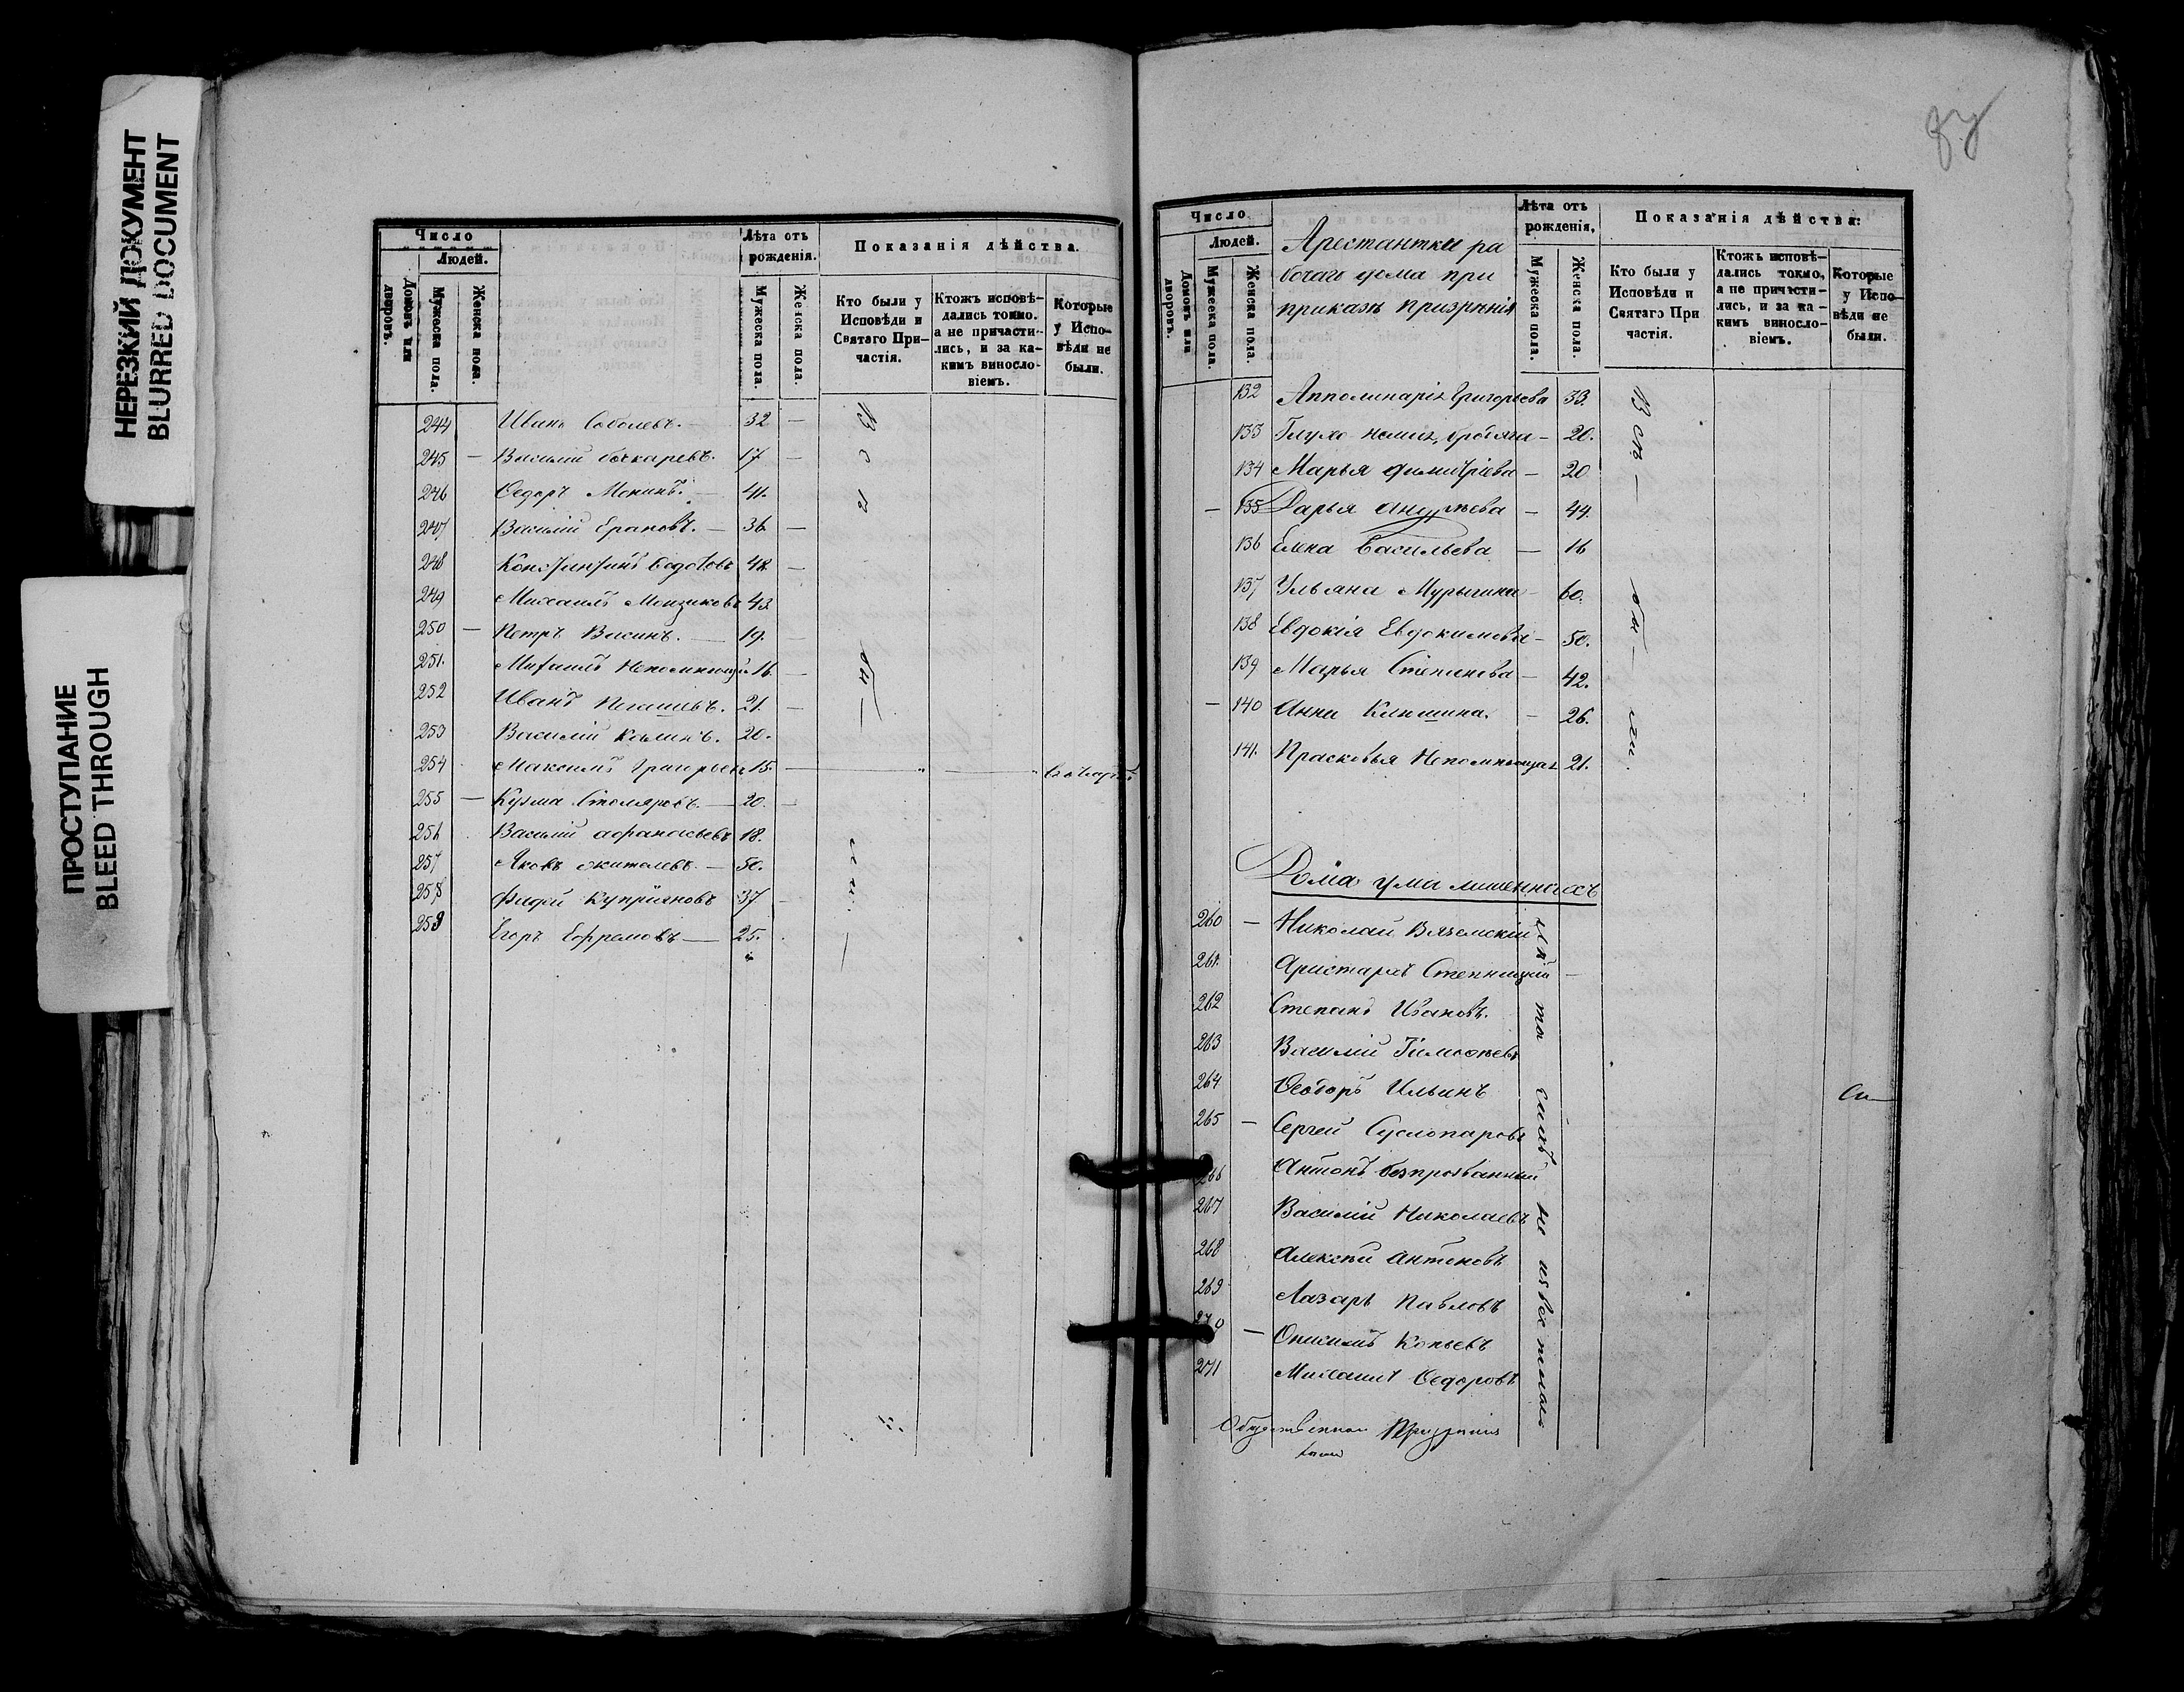 НЕРЕЗКИЙ ДОКУМЕНТ
BLURRED DOCUMENT
ПРОСТУПАНИЕ
BLEED THROUGH
Число
Людей.
Домовъ или дворовъ.
Мужеска пола.
Женска пола.
Лѣта отъ рожденія.
Мужеска пола.
Женска пола.
Показанія дѣйства.
Кто были у Исповѣди и Святаго При-
частія.
Ктожъ исповѣ-
дались токмо.
а не причасти-
лись, и за ка-
кимъ виносло-
віемъ.
Которые
у Испо-
вѣди не
были.
244 Иванъ Соболевъ. 32 —
245 — Василій Бочкаревъ. 17 —
246 Ѳедоръ Мокинъ. — 41.
247 Василій Ерановъ. — 36 —
248 Константинъ 42 —
249 Михаилъ 43
250 — Петръ Васинъ. — 19.
251. Михаилъ Непомнющій 16. —
252 Иванъ 21. —
253 Василій Калинъ. 20.
254 Максимъ Григорьевъ 15. —
255 — Кузма Столяровъ. — 20. —
256 Василій Афанасьевъ 18.
257 Яковъ Жителевъ. — 50.
258 Фадей Купріяновъ 37 —
259 Егоръ Ефремовъ — 25.
87
Число
Людей.
Домовъ или дворовъ.
Мужеска пола.
Женска пола.
Арестантки ра
бочаго дома при
приказѣ Призрѣнія
Лѣта отъ
рожденія,
Мужеска пола.
Женска пола.
Показанія дѣйства:
Кто были у
Исповѣди и
Святаго При
частія.
Ктожъ исповѣ-
дались токмо,
а не причасти-
лись, и за ка-
кимъ виносло-
віемъ.
Которые
у Испо-
вѣди не
были.
132 Апполинарія Григорьева 33.
133 Глухо немая, бродяга — 20.
134 Марья Димитріева — 20
— 135 Дарья Андреева — 44.
136 Елена Васильева — 16
137 Ульяна Мурыгина — 60.
138 Евдокія Евдокимова — 50.
139 Марья Степанова — 42.
— 140 Анна Клюшина. — 26.
141. Прасковья Непомнющая 21.
Всѣ — бы — ли.
Дома ума лишенныхъ
260 — Николай Вяземскій
261. Аристархъ Степницкій —
262 Степанъ Ивановъ.
263 Василій Тимофеевъ
264 Ѳеодоръ Ильинъ
265 — Сергей Суслопаровъ
266 Антонъ безпрозванный
267 Василій Николаевъ
268 Алексѣй Антоновъ
269 Лазарь Павловъ
270 — Онисимъ Копьевъ
271 Михаилъ Ѳедоровъ
лѣта симъ не извѣстны
Общественнаго Призрѣнія